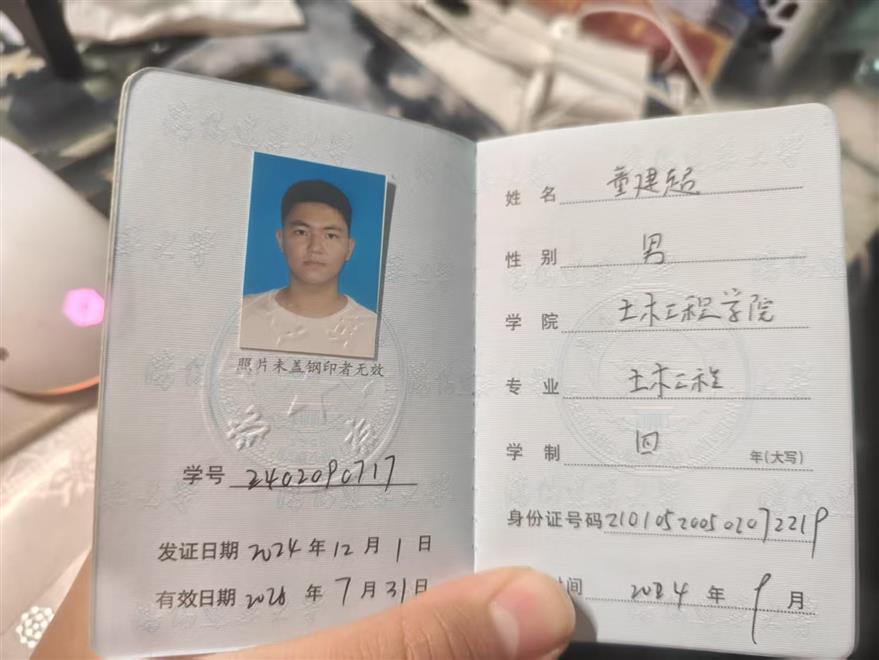 照片未盖钢印者无效
学号 2402090717
发证日期 2024 年 12 月 1 日
有效日期 2028 年 7 月 31 日
姓 名 童建超
性 别 男
学 院 土木工程学院
专 业 土木工程
学 制 四 年(大写)
身份证号码 210105200502072219
间 2024 年 9 月